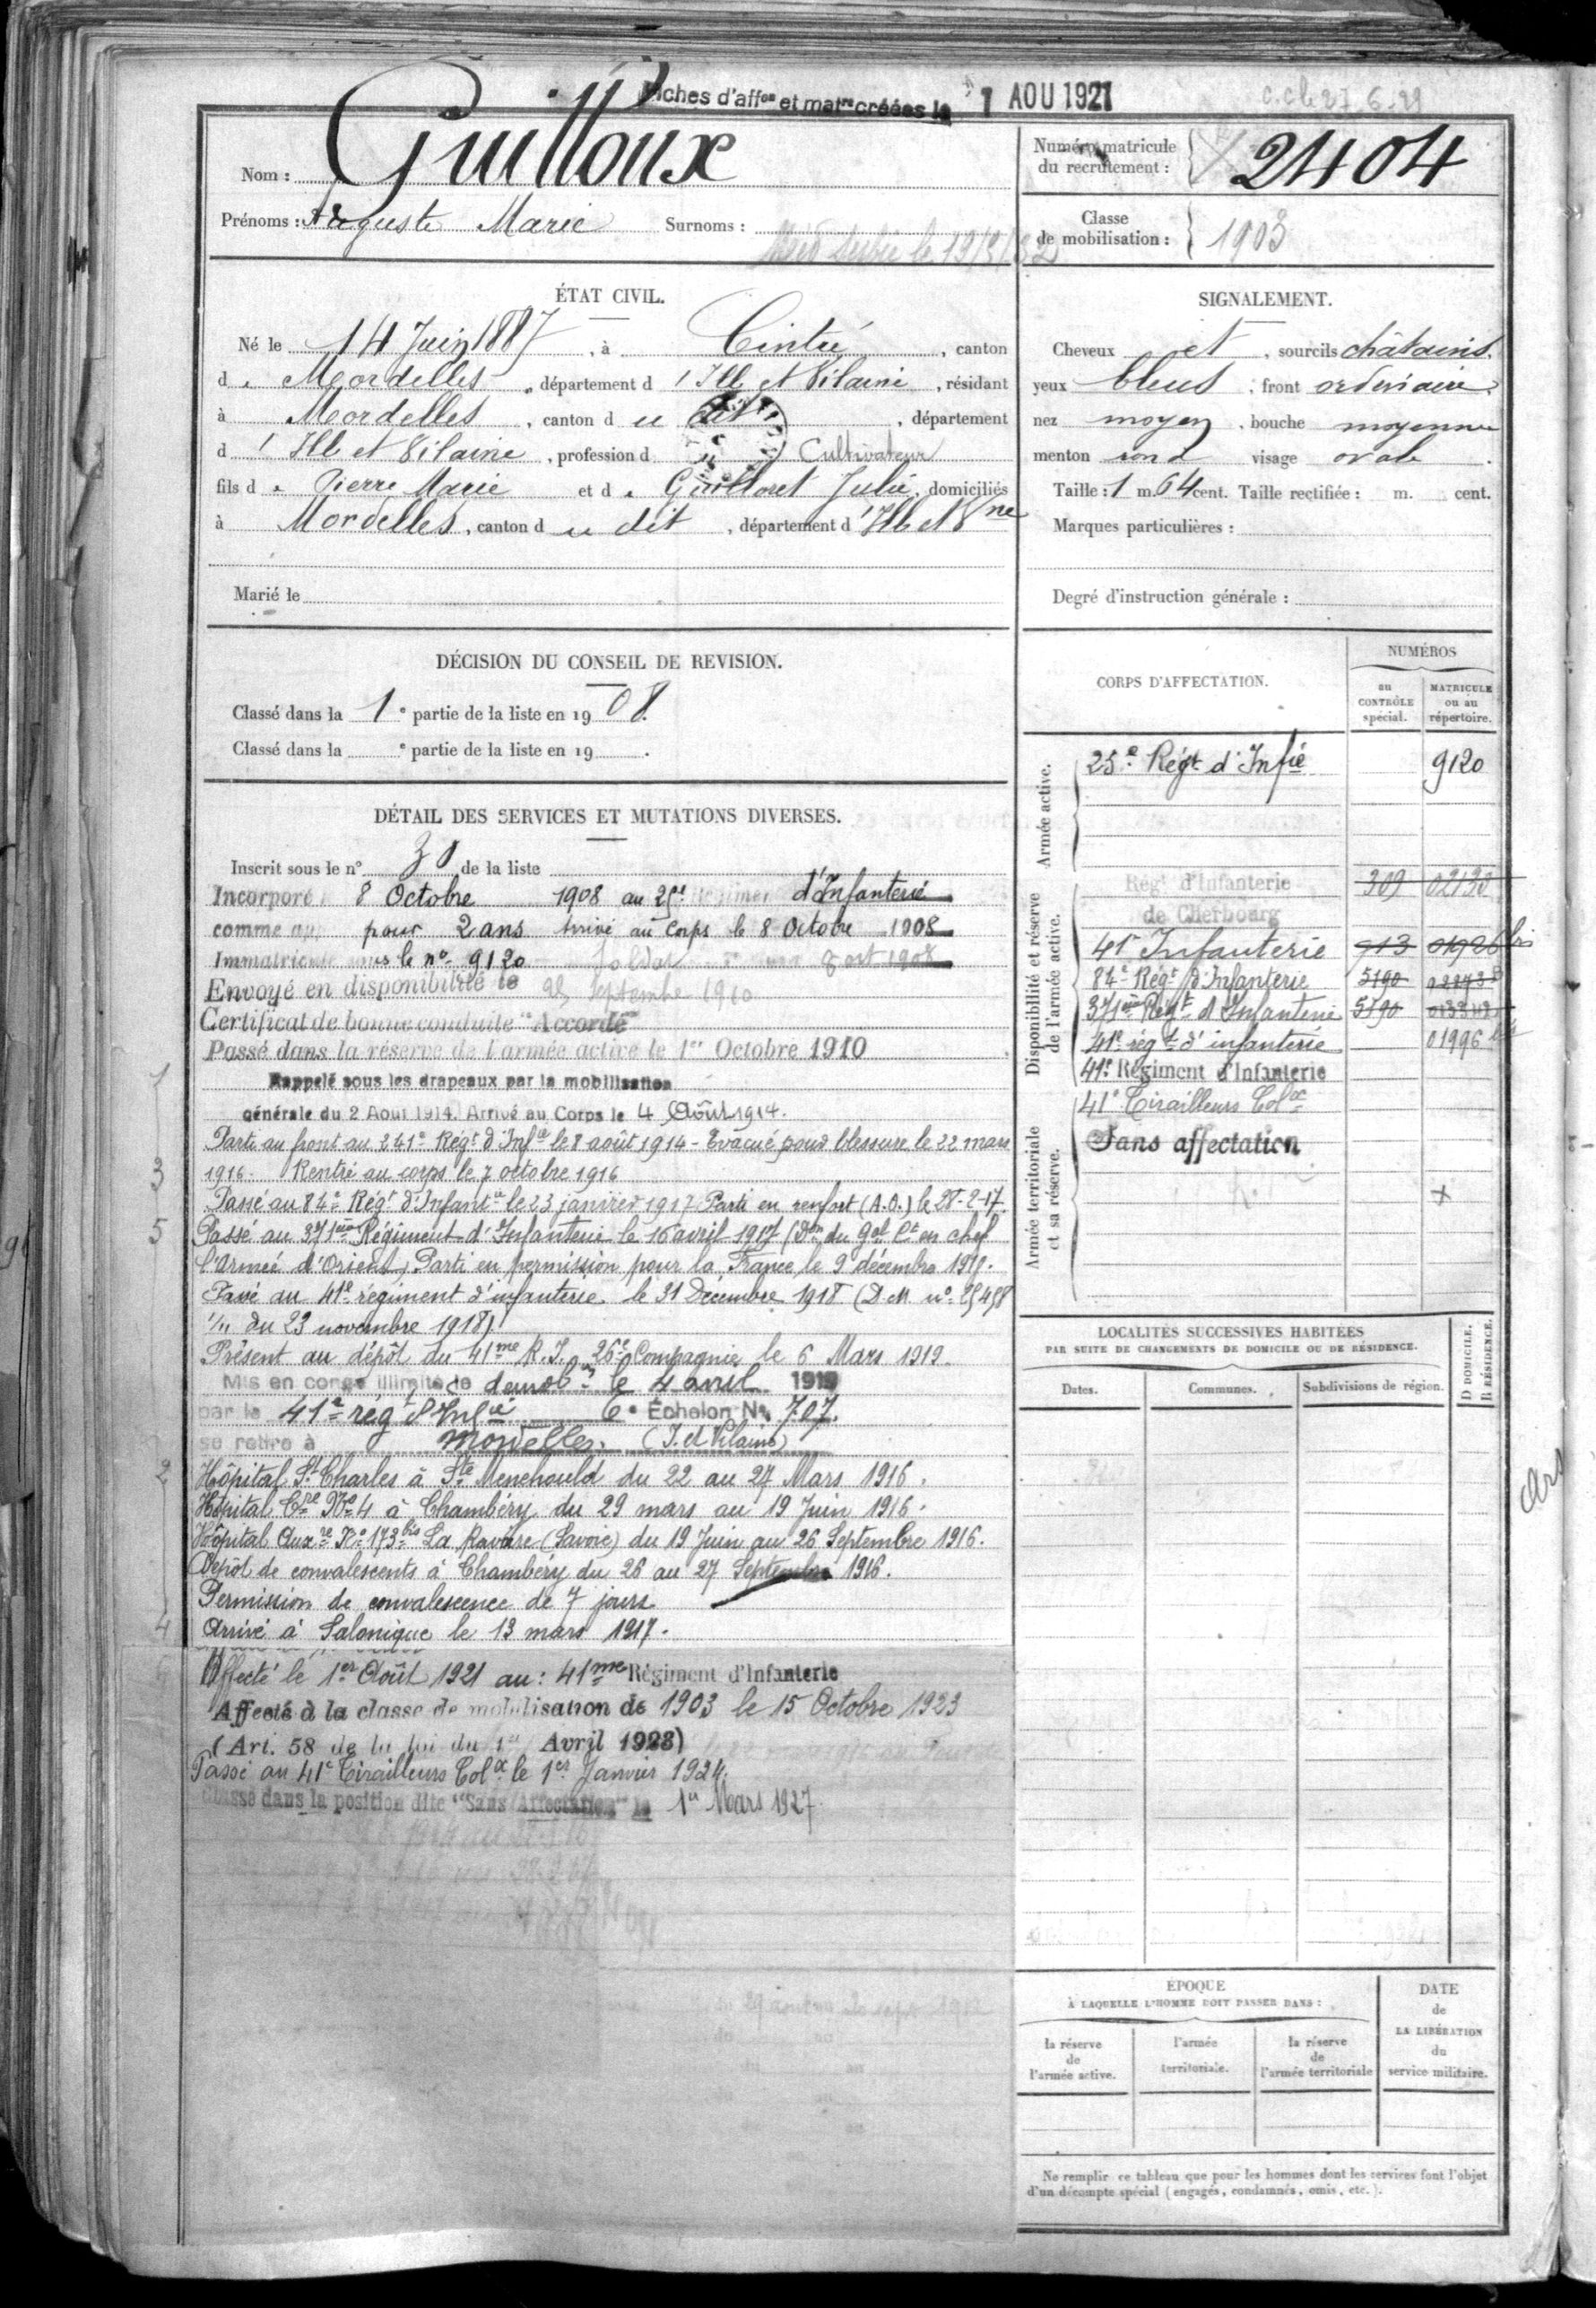 Fiches d'affon et matre créées le 1 AOU 1921
c.c le 27.6.29
Nom : Guilloux
Numéro matricule du recrutement : 2404
Prénoms : Auguste Marie Surnoms :
Classe de mobilisation : 1903
ÉTAT CIVIL.
Né le 14 Juin 1887, à Cintré, canton
de Mordelles, département d'Ille et Vilaine, résidant
à Mordelles, canton du dit, département
d'Ille et Vilaine, profession de Cultivateur
fils de Pierre Marie et de Guilloret Julie, domiciliés
à Mordelles, canton du dit, département d'Ille et Vne
Marié le
SIGNALEMENT.
Cheveux et, sourcils châtains.
yeux bleus, front ordinaire
nez moyen, bouche moyenne
menton rond visage ovale.
Taille : 1 m. 64 cent. Taille rectifiée : m. cent.
Marques particulières :
Degré d'instruction générale :
DÉCISION DU CONSEIL DE REVISION.
Classé dans la 1e partie de la liste en 1908.
Classé dans la e partie de la liste en 19 .
DÉTAIL DES SERVICES ET MUTATIONS DIVERSES.
Inscrit sous le n° 30 de la liste
Incorporé 8 Octobre 1908 au 25e d'Infanterie
comme pour 2 ans Arrivé au Corps le 8 Octobre 1908
Immatriculé sous le n° 9120 Soldat 8 oct 1908
Envoyé en disponibilité le 25 septembre 1910
Certificat de bonne conduite "Accordé"
Passé dans la réserve de l'armée active le 1er Octobre 1910
1 Rappelé sous les drapeaux par la mobilisation
générale du 2 Aout 1914. Arrivé au Corps le 4 Août 1914.
Parti au front au 241e Régt d'Infie le 8 août 1914 - Evacué pour blessure le 22 mars
3 1916. Rentré au corps le 7 octobre 1916
Passé au 84e Régt d'Infantie le 23 janvier 1917 Parti en renfort (A.O.) le 28-2-17.
5 Passé au 371ème Régiment d'Infanterie le 16 avril 1917 (Don du Gal Ct en chef
l'Armée d'Orient) Parti en permission pour la France le 9 décembre 1918.
Passé au 41e régiment d'infanterie le 31 Décembre 1918 (D.M. n° 25458
1/11 du 23 novembre 1918)
Présent au dépôt du 41me R.I. 26e Compagnie le 6 Mars 1919.
Mis en congé illimité de démobon le 4 avril 1919
par le 41e régt d'Infie 6e Échelon No 707.
se retire à Mordelles. (I. et Vilaine)
2 Hôpital St Charles à Ste Menehould du 22 au 27 Mars 1916.
Hôpital Cre No 4 à Chambéry du 29 mars au 19 Juin 1916.
Hôpital Auxre No 173bis La Ravoire (Savoie) du 19 Juin au 26 Septembre 1916.
Dépôt de convalescents à Chambéry du 26 au 27 Septembre 1916.
Permission de convalescence de 7 jours
4 Arrivé à Salonique le 13 mars 1917.
6 Affecté le 1er Août 1921 au : 41me Régiment d'Infanterie
Affecté à la classe de mobilisation de 1903 le 15 Octobre 1923
(Art. 58 de la loi du 1er Avril 1923)
Passé au 41e Tirailleurs Colx le 1er Janvier 1924.
Classé dans la position dite "Sans Affectation" le 1er Mars 1927
CORPS D'AFFECTATION.
NUMÉROS
au CONTRÔLE spécial.
MATRICULE ou au répertoire.
Armée active.
25e Régt d'Infie 9120
Disponibilité et réserve de l'armée active.
Régt d'Infanterie de Cherbourg 309 02130
41e Infanterie 913 01926 bis
84e Régt d'Infanterie 5190
371ème Régt d'Infanterie 5190
41e régt d'infanterie 01996 bis
41e Régiment d'Infanterie
41e Tirailleurs Colx
Armée territoriale et sa réserve.
Sans affectation
LOCALITÉS SUCCESSIVES HABITÉES
PAR SUITE DE CHANGEMENTS DE DOMICILE OU DE RÉSIDENCE.
Dates. Communes. Subdivisions de région. D DOMICILE. R RÉSIDENCE.
ÉPOQUE
À LAQUELLE L'HOMME DOIT PASSER DANS :
la réserve de l'armée active.
l'armée territoriale.
la réserve de l'armée territoriale
DATE de LA LIBÉRATION du service militaire.
Ne remplir ce tableau que pour les hommes dont les services font l'objet
d'un décompte spécial (engagés, condamnés, omis, etc.).